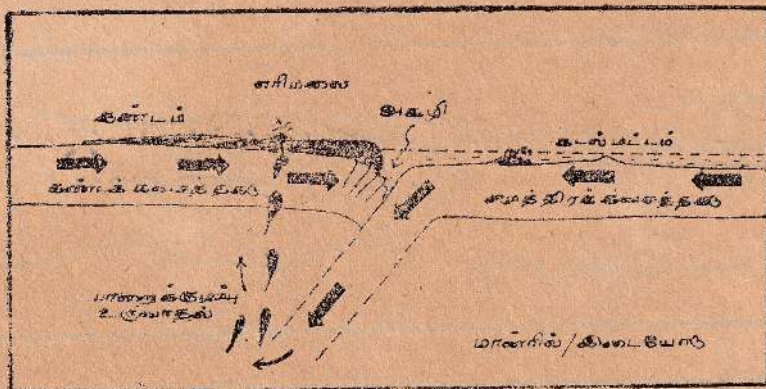 எரிமலை
கண்டம்
அகழி
கடல்மட்டம்
கண்டக் கவசத்தகடு
சமுத்திரக் கவசத்தகடு
பாறைக்குழம்பு
உருவாதல்
மான்ரில்/இடையோடு